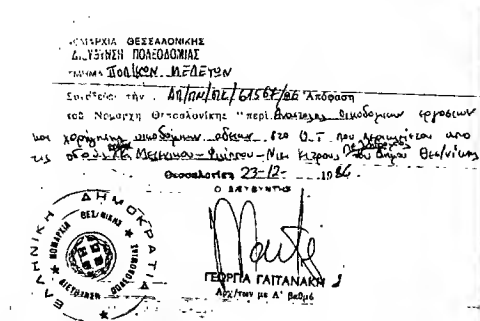 ΝΟΜΑΡΧΙΑ ΘΕΣΣΑΛΟΝΙΚΗΣ
Δ.ΥΣΗ ΠΟΛΕΟΔΟΜΙΑΣ
ΤΜΗΜΑ ΠΟΛ/ΚΩΝ ΜΕΛΕΤΩΝ
την ΔΠ/ΠΜ/ΠΕ/61567/86 Απόφαση
τού Νομάρχη Θεσσαλονίκης "περί Αναστολής οικοδομικων εργασιων
και χορήγησης οικοδομικων αδειων στο Ο.Τ που περικλείεται απο
τις οδους Μελενικου - Φιλιππου - Νικ. του Δημου Θες/νίκης
Θεσσαλονίκη 23-12- 1986
Ο ΔΙΕΥΘΥΝΤΗΣ
ΓΕΩΡΓΙΑ ΓΑΪΤΑΝΑΚΗ
Αρχ/των με Α' βαθμό
ΕΛΛΗΝΙΚΗ ΔΗΜΟΚΡΑΤΙΑ
ΝΟΜΑΡΧΙΑ ΘΕΣ/ΝΙΚΗΣ
ΔΙΕΥΘΥΝΣΗ ΠΟΛΕΟΔΟΜΙΑΣ